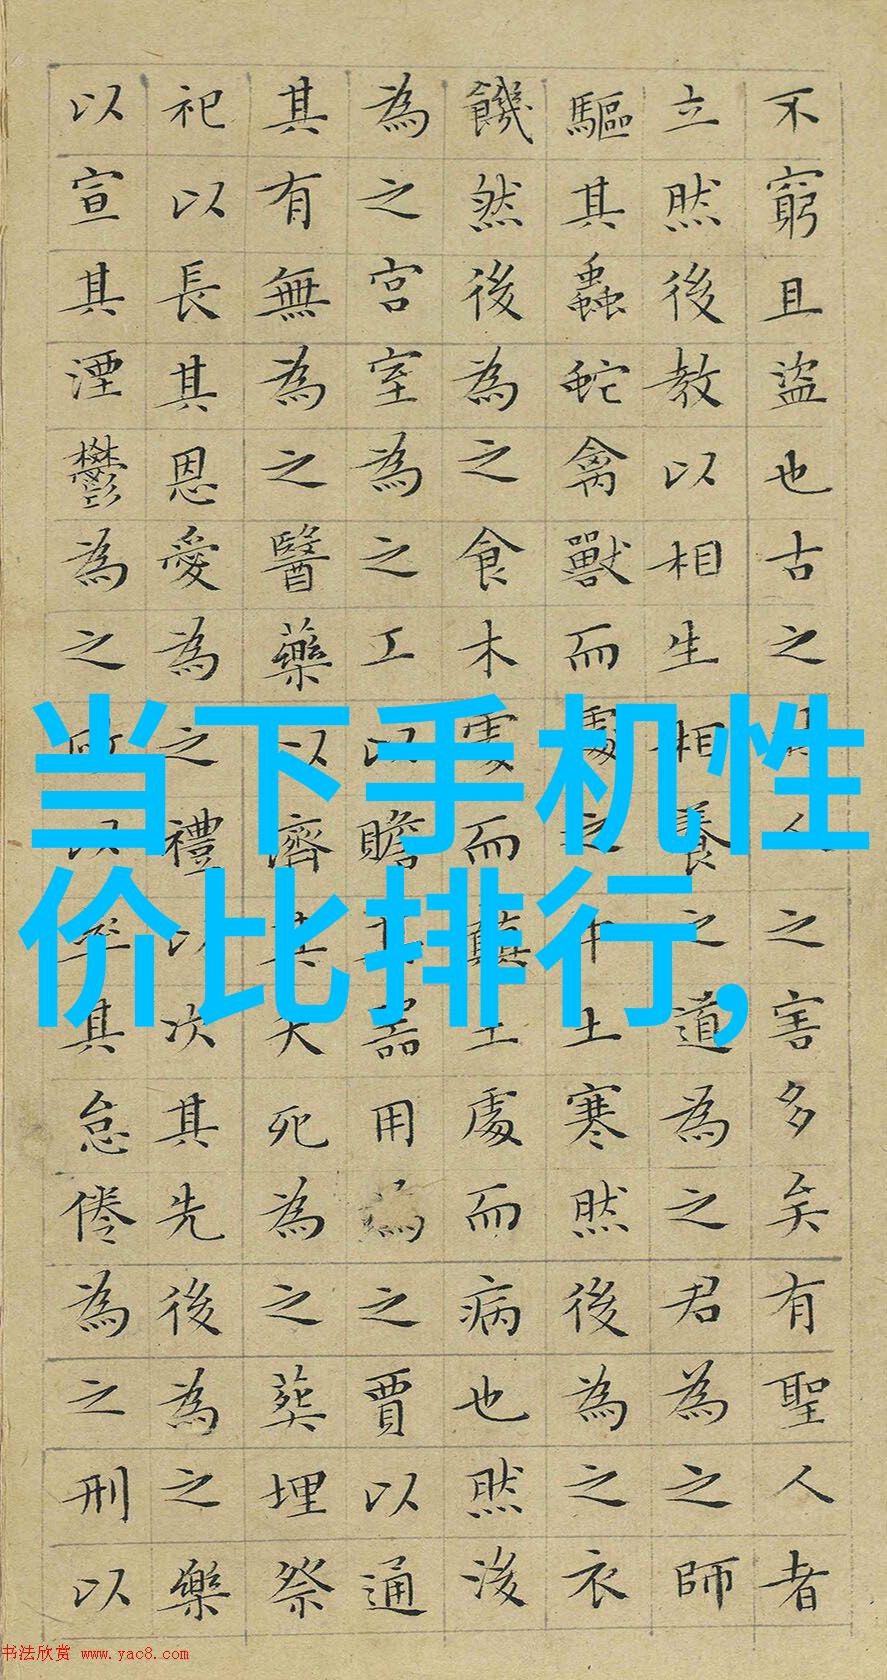 当下手机性
价比排行,
不窮且盜也古之人之害多矣有聖人者
立然後教以相生相養之道為之君為之師
驅其蟲蛇禽獸而處之中土寒然後為之衣
饑然後為之食木處而土處而病也然後
為之宮室為之工以贍其器用為之賈以通
其有無為之醫藥以濟其夭死為之葬埋祭
祀以長其恩愛為之禮以次其先後為之樂
以宣其湮鬱為之以率其怠倦為之刑以
书法欣赏 www.yac8.com